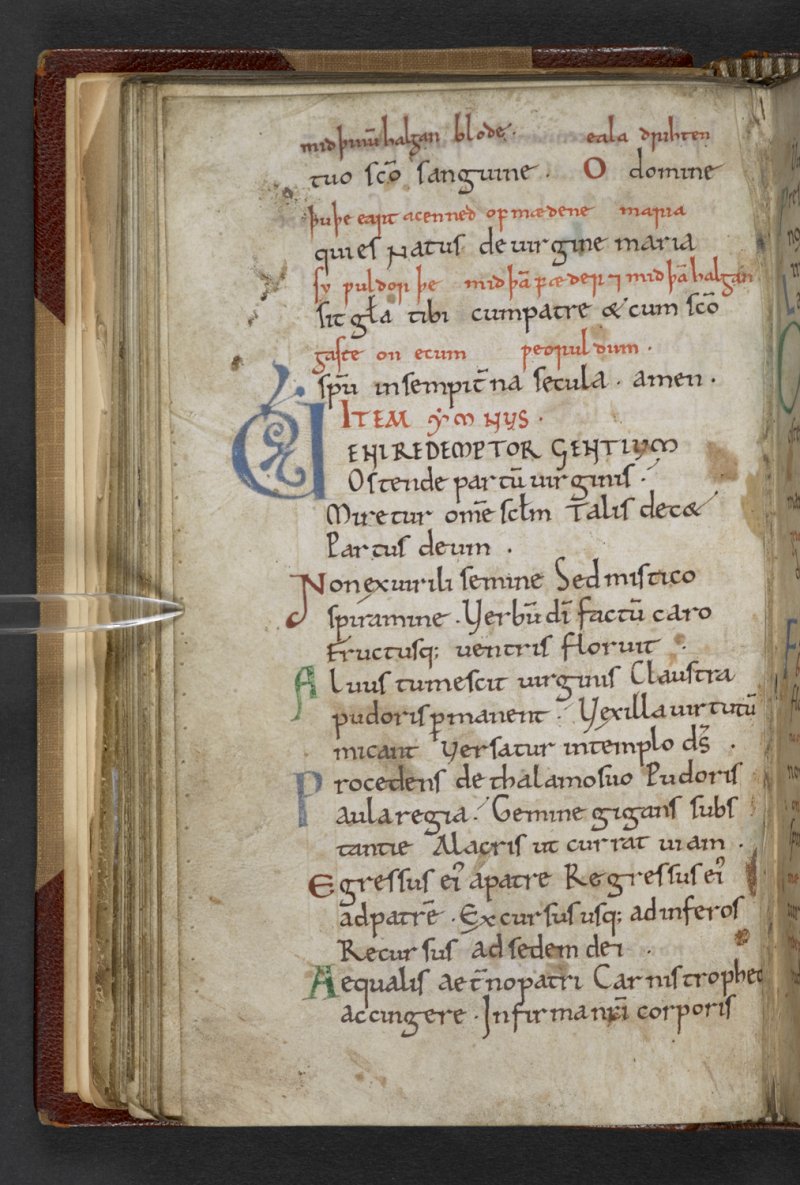 mid þinū halgan blode · eala drihten
tuo sc̄o sanguine · O domine
þu þe eart acenned of mædene maria
qui es Natus de uirgine maria
sy wuldor þe mid þā fæder ⁊ mid þā halgan
sit gł̄a tibi cum patre & cum sc̄o
gaste on ecum weoruldum ·
sp̄u in sempit̄na secula · amen ·
ITEM YMNUS ·
UENI REDEMPTOR GENTIUM
Ostende partū uirginis ·
Miretur om̄e scl̄m Talis dec&
Partus deum ·
Non ex uirili semine Sed mistico
spiramine · Verbū dī factū caro
fructusq; uentris floruit ·
Aluus tumescit uirginis Claustra
pudoris ꝑmanent · Vexilla uirtutū
micant Versatur in templo ds̄ ·
Procedens de thalamo suo Pudoris
aula regia · Gemine gigans subs
tantie Alacris ut currat uiam ·
Egressus ei᾽ a patre Regressus ei᾽
ad patrē · Excursus usq; ad inferos
Recursus ad sedem dei ·
Aequalis aet̄no patri Carnis tropheo
accingere · Infirma nr̄i corporis